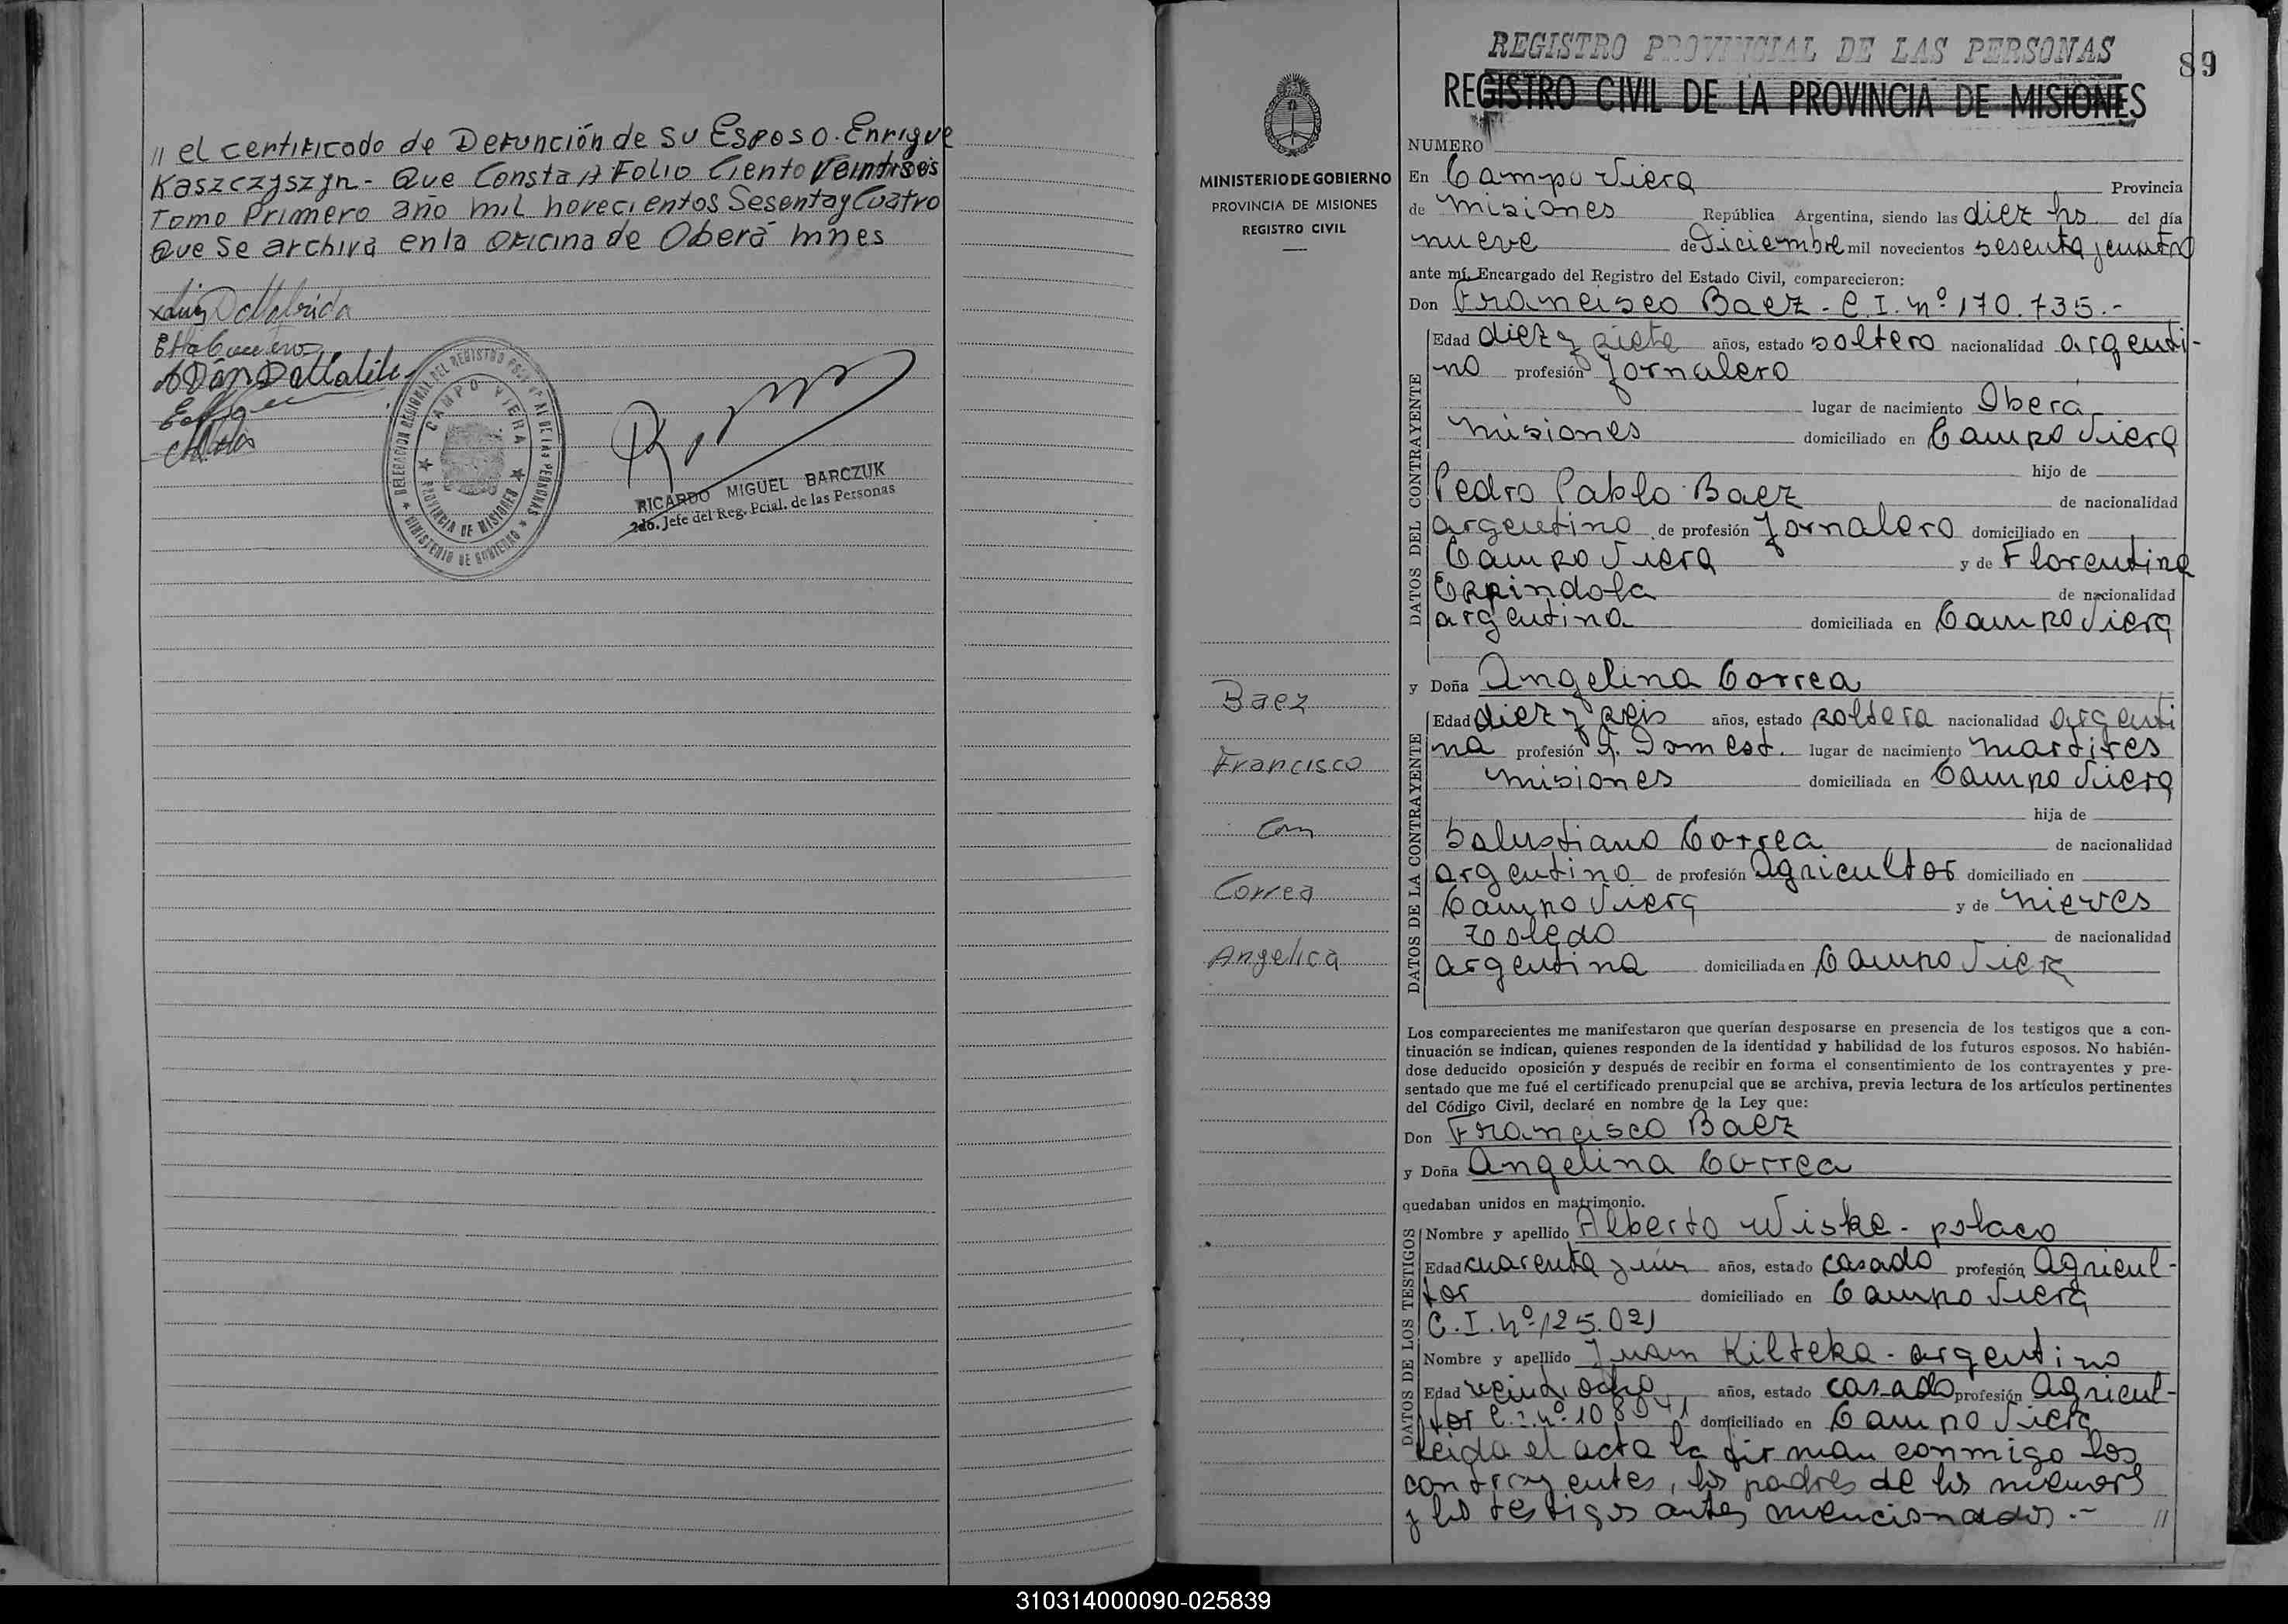 " el certificado de Defunción de su Esposo. Enrique
Kaszczyszyn - Que Consta A Folio Ciento Veintiseis
Tomo Primero año mil novecientos Sesenta y Cuatro
Que Se archiva en la Oficina de Oberá Mnes
DELEGACION REGIONAL DEL REGISTRO PCIAL DE LAS PERSONAS
CAMPO VIERA
PROVINCIA DE MISIONES
MINISTERIO DE GOBIERNO
RICARDO MIGUEL BARCZUK
2do. Jefe del Reg. Pcial. de las Personas
REGISTRO PROVINCIAL DE LAS PERSONAS
89
REGISTRO CIVIL DE LA PROVINCIA DE MISIONES
MINISTERIO DE GOBIERNO
PROVINCIA DE MISIONES
REGISTRO CIVIL
Baez
Francisco
Con
Correa
Angelica
NUMERO
En Campo Viera Provincia
de Misiones República Argentina, siendo las diez hs. del día
nueve de Diciembre mil novecientos sesenta y cuatro
ante mí, Encargado del Registro del Estado Civil, comparecieron:
Don Francisco Baez - C.I. nº 170.735.-
DATOS DEL CONTRAYENTE
Edad diez y siete años, estado soltero nacionalidad argenti-
no profesión Jornalero
lugar de nacimiento Oberá
Misiones domiciliado en Campo Viera
hijo de
Pedro Pablo Baez de nacionalidad
argentino de profesión Jornalero domiciliado en
Campo Viera y de Florentina
Espindola de nacionalidad
argentina domiciliada en Campo Viera
y Doña Angelina Correa
DATOS DE LA CONTRAYENTE
Edad diez y seis años, estado soltera nacionalidad argenti
na profesión Q. Domest. lugar de nacimiento Martires
Misiones domiciliada en Campo Viera
hija de
Salustiano Correa de nacionalidad
argentino de profesión Agricultor domiciliado en
Campo Viera y de Nieves
Toledo de nacionalidad
argentina domiciliada en Campo Viera
Los comparecientes me manifestaron que querían desposarse en presencia de los testigos que a con-
tinuación se indican, quienes responden de la identidad y habilidad de los futuros esposos. No habién-
dose deducido oposición y después de recibir en forma el consentimiento de los contrayentes y pre-
sentado que me fué el certificado prenupcial que se archiva, previa lectura de los artículos pertinentes
del Código Civil, declaré en nombre de la Ley que:
Don Francisco Baez
y Doña Angelina Correa
quedaban unidos en matrimonio.
DATOS DE LOS TESTIGOS
Nombre y apellido Alberto Wiske - polaco
Edad cuarenta y un años, estado casado profesión Agricul-
tor domiciliado en Campo Viera
C.I. nº 125.021
Nombre y apellido Juan Kilteka - argentino
Edad veintiocho años, estado casado profesión Agricul-
tor C.I. nº 108041 domiciliado en Campo Viera
Leida el acta la firman conmigo los
contrayentes, los padres de los menores
y los testigos antes mencionados.- //
310314000090-025839